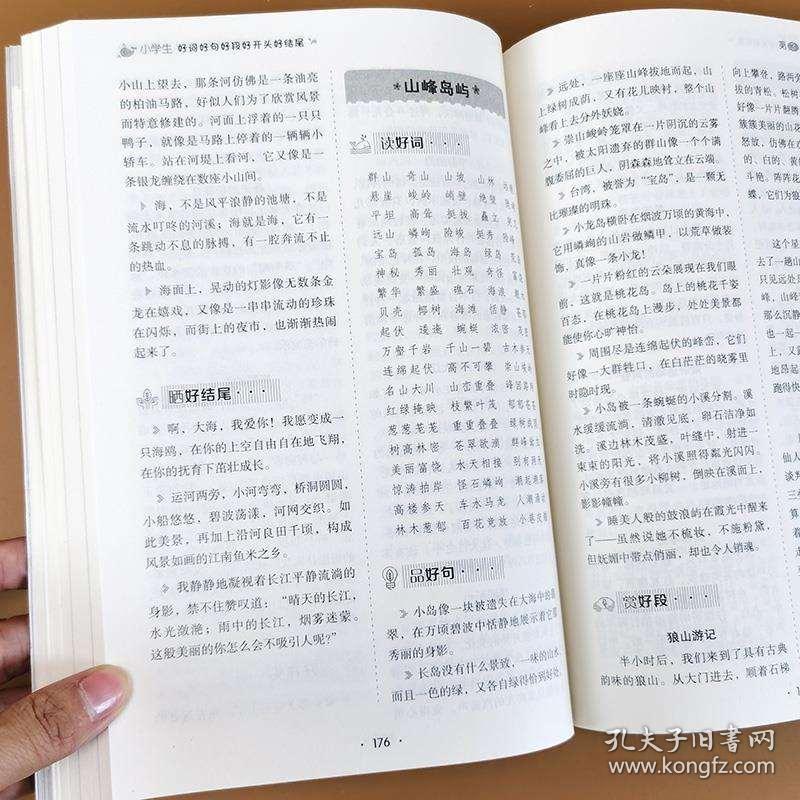 小学生 好词好句好段好开头好结尾
小山上望去，那条河仿佛是一条油亮
的柏油马路，好似人们为了欣赏风景
而特意修建的。河面上浮着的一只只
鸭子，就像是马路上停着的一辆辆小
轿车。站在河堤上看河，它又像是一
条银龙缠绕在数座小山间。
海，不是风平浪静的池塘，不是
流水叮咚的河溪；海就是海，它有一
条跳动不息的脉搏，有一腔奔流不止
的热血。
海面上，晃动的灯影像无数条金
龙在嬉戏，又像是一串串流动的珍珠
在闪烁，而街上的夜市，也渐渐热闹
起来了。
晒好结尾
啊，大海，我爱你！我愿变成一
只海鸥，在你的上空自由自在地飞翔，
在你的抚育下茁壮成长。
运河两旁，小河弯弯，桥洞圆圆，
小船悠悠，碧波荡漾，河网交织。如
此美景，再加上沿河良田千顷，构成
风景如画的江南鱼米之乡。
我静静地凝视着长江平静流淌的
身影，禁不住赞叹道：“晴天的长江，
水光潋滟；雨中的长江，烟雾迷蒙。
这般美丽的你怎么会不吸引人呢？”
山峰岛屿
读好词
群山 奇山 山坡 山林
悬崖 峻岭 峭壁 绝壁
平坦 高耸 挺拔 矗立
远山 嶙峋 险峻 挺秀
宝岛 孤岛 海岛 绿岛
神秘 秀丽 壮观 奇怪
繁华 繁盛 礁石 海浪
贝壳 椰树 海滩 恬静
起伏 逶迤 蜿蜒 浓密
万壑千岩 千山一碧 古木参天
连绵起伏 高不可攀 崇山峻岭
名山大川 山峦重叠 峰回路转
红绿掩映 枝繁叶茂 郁郁苍苍
葱葱茏茏 重重叠叠
树高林密 苍翠欲滴 群峰
美丽富饶 水天相接 别有洞天
惊涛拍岸 怪石嶙峋 潮起潮落
高楼参天 车水马龙 人潮涌动
林木葱郁 百花竞放
品好句
小岛像一块被遗失在大海中的翡
翠，在万顷碧波中恬静地展示着它那
秀丽的身影。
长岛没有什么景致，一味的山水，
而且一色的绿，又各自绿得恰到好处。
176
远处，一座座山峰拔地而起，山
上绿树成荫，又有花儿映衬，整个山
峰看上去分外妖娆。
崇山峻岭笼罩在一片阴沉的云雾
之中，被太阳遗弃的群山像一个个满
腹委屈的巨人，阴森森地耸立在云端。
台湾，被誉为“宝岛”，是一颗无
比璀璨的明珠。
小龙岛横卧在烟波万顷的黄海中，
它用嶙峋的山岩做鳞甲，以荒草做装
饰，真像一条小龙！
一片片粉红的云朵展现在我们眼
前，这就是桃花岛。岛上的桃花千姿
百态，在桃花岛上漫步，处处美景都
能使你心旷神怡。
周围尽是连绵起伏的峰峦，它们
好像一大群牲口，在白茫茫的晓雾里
时隐时现。
小岛被一条蜿蜒的小溪分割。溪
水缓缓流淌，清澈见底，卵石洁净如
洗。溪边林木茂盛，叶缝中，射进一
束束的阳光，将小溪照得粼光闪闪。
小溪旁有很多小柳树，倒映在溪面上，
影影幢幢。
睡美人般的鼓浪屿在霞光中醒来
了——虽然说她不梳妆，不施粉黛，
但妩媚中带点俏丽，却也令人销魂。
赏好段
狼山游记
半小时后，我们来到了具有古典
韵味的狼山。从大门进去，顺着石梯
向上攀登，路两旁
的青松、松树
好像一片片翻腾
簇簇美丽的山花
怒放，仿佛在
的、白的、黄的
斗艳。阵阵花
蝶，它们为我
这个星
去了一趟山
只见远处
山，山峰
那么沉静
上，又
地昂起
跑得快
仙人
孔夫子旧书网
www.kongfz.com